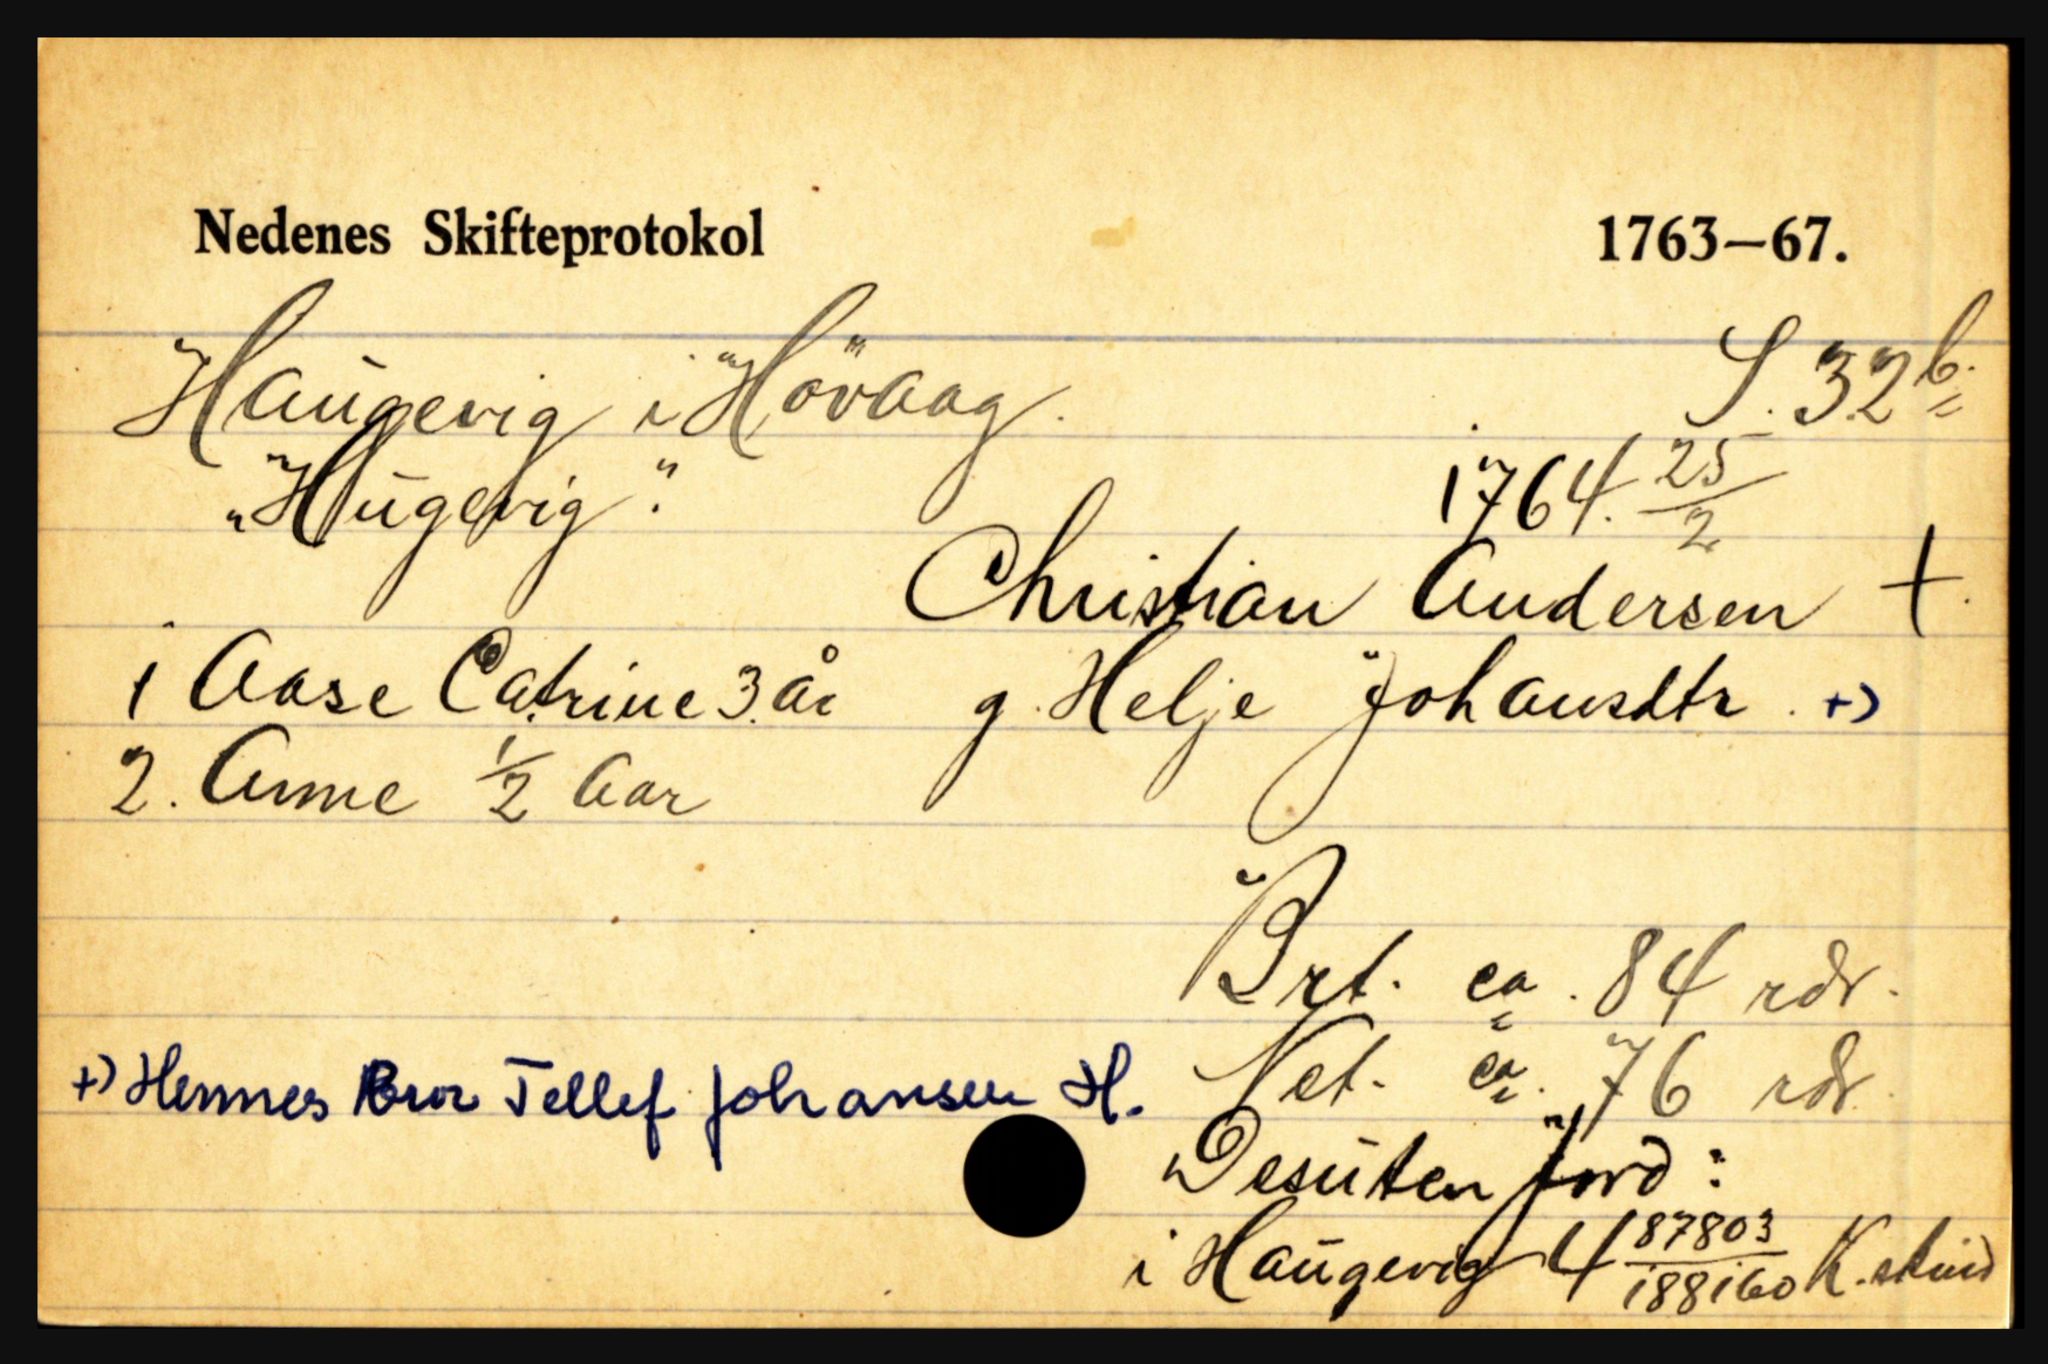 Nedenes Skifteprotokol 1763—67.
Haugevig i Hövaag. S. 32 b.
„Hugevig". 1764. 25/2
Christian Andersen +.
1 Aase Catrine 3 år g. Helje Johansdtr. +)
2. Anne 1/2 Aar
Brt. ca. 84 rdr.
Net. ca. 76 rdr.
+) Hennes Bror Tellef Johansen H.
Desuten jord:
i Haugevig 4 87803/188160 K. skind